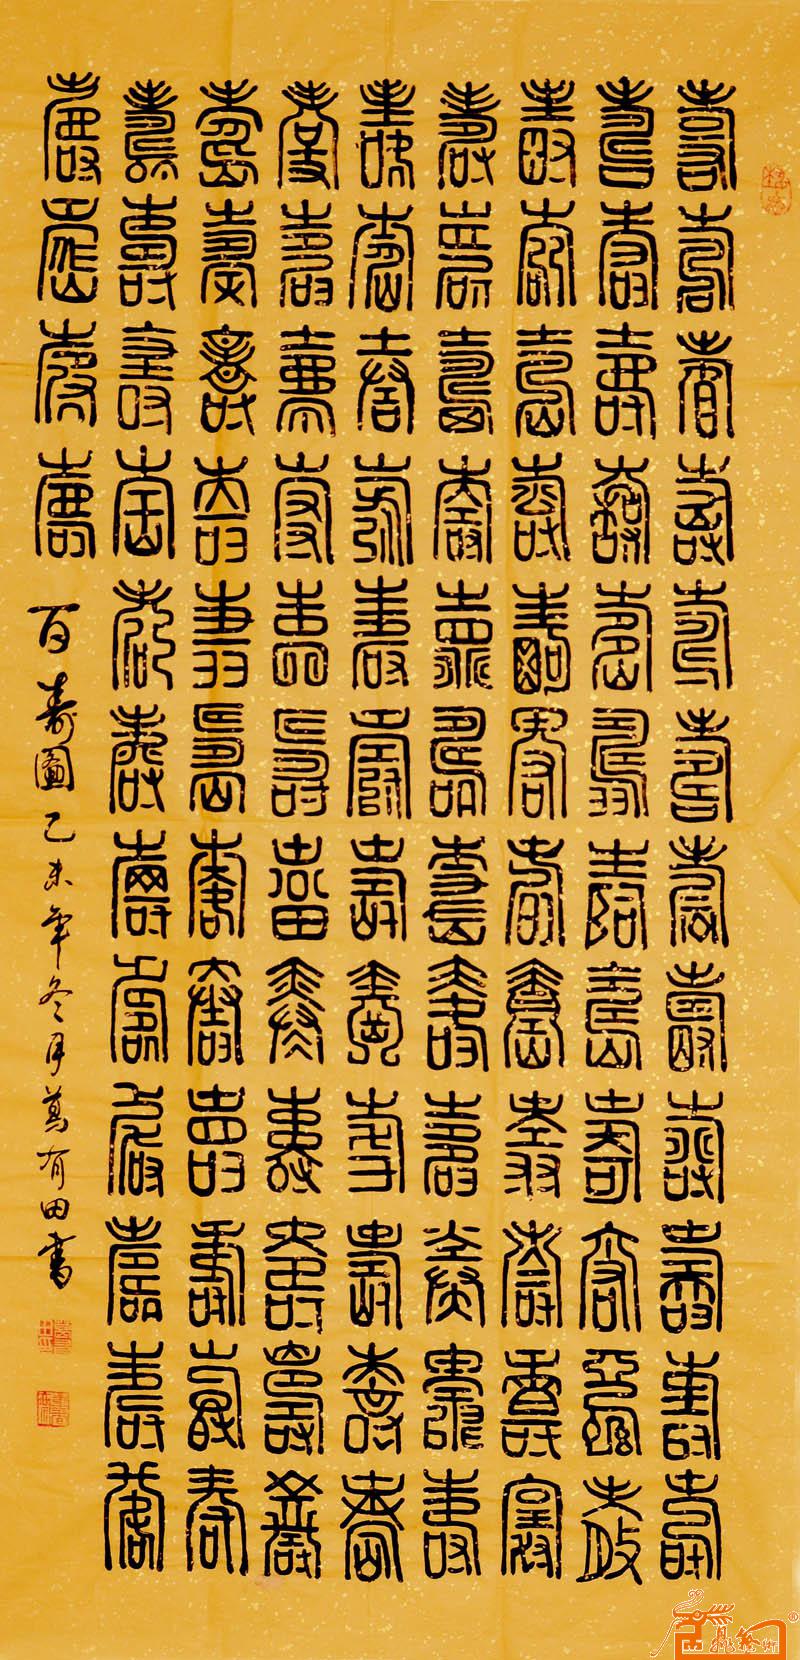 壽壽壽壽壽壽壽壽壽壽壽壽
壽壽壽壽壽壽壽壽壽壽壽壽
壽壽壽壽壽壽壽壽壽壽壽壽
壽壽壽壽壽壽壽壽壽壽壽壽
壽壽壽壽壽壽壽壽壽壽壽壽
壽壽壽壽壽壽壽壽壽壽壽壽
壽壽壽壽壽壽壽壽壽壽壽壽
壽壽壽壽壽壽壽壽壽壽壽壽
壽壽壽壽百壽圖乙未年冬月萬有田書